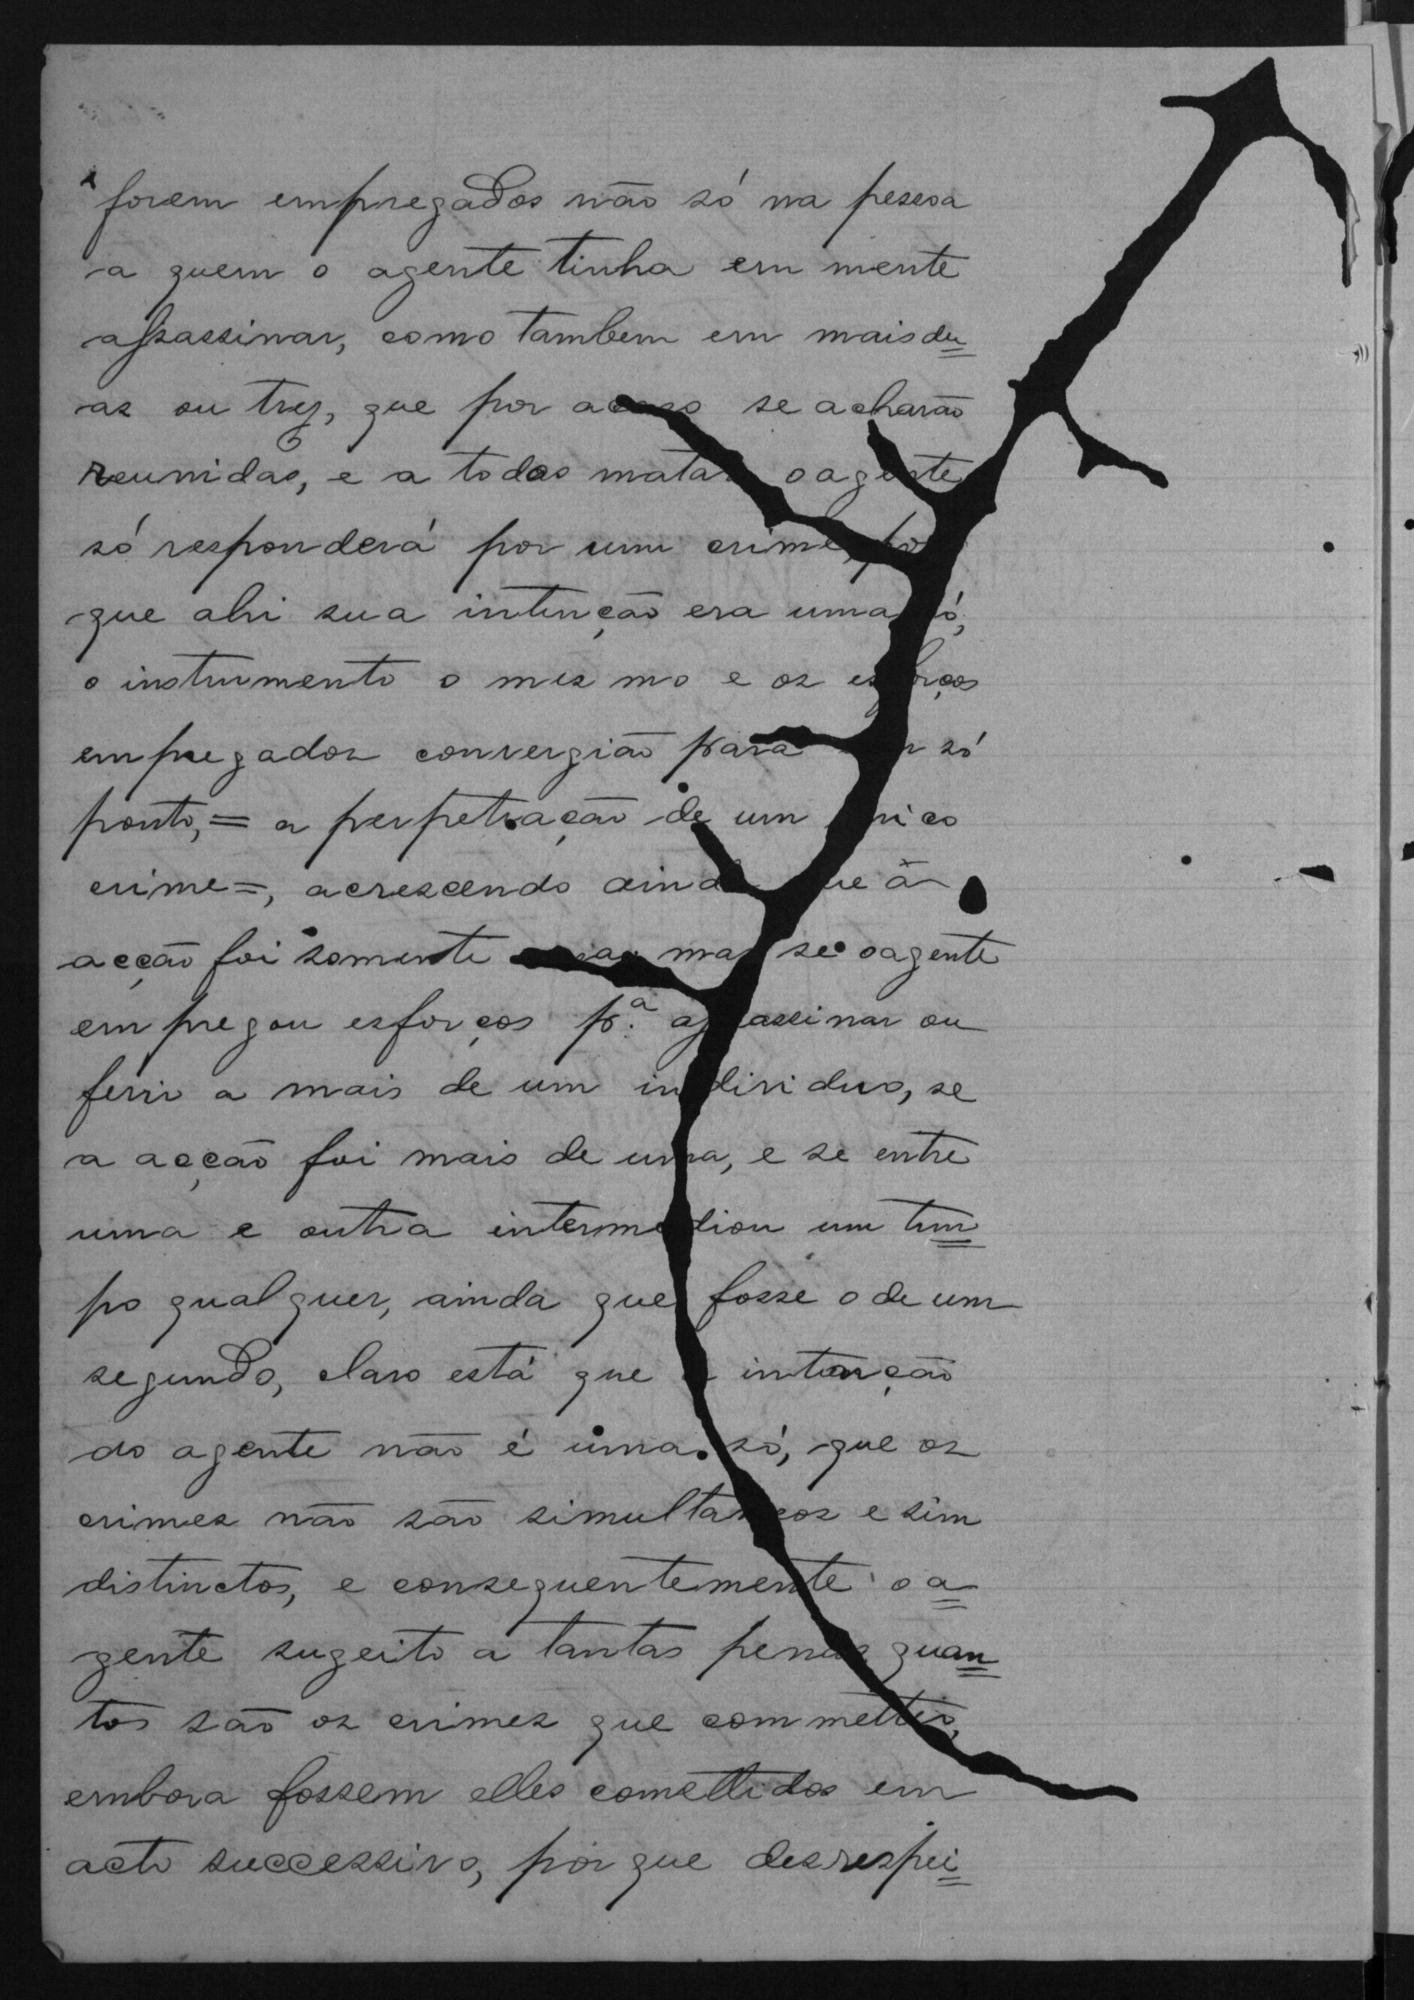 forem empregados não só na pessoa
a quem o agente tinha em mente
assassinar, como tambem em mais du=
as ou trez, que por acaso se acharão
reunidas, e a todas matar o agente
só responderá por um crime, por
que ahi sua intenção era uma só,
o instrumento o mesmo e os esforços
empregados convergião para um só
ponto, = a perpetração de um unico
crime =, acrescendo ainda que a
acção foi somente uma, mas se o agente
empregou esforços p.ª assassinar ou
ferir a mais de um individuo, se
a acção foi mais de uma, e se entre
uma e outra intermediou um tem=
po qualquer, ainda que fosse o de um
segundo, claro está que a intenção
do agente não é uma só, que os
crimes não são simultaneos e sim
distinctos, e consequentemente o a=
gente sugeito a tantas penas quan=
tos são os crimes que commetteo,
embora fossem elles comettidos em
acto successivo, por que desrespei=